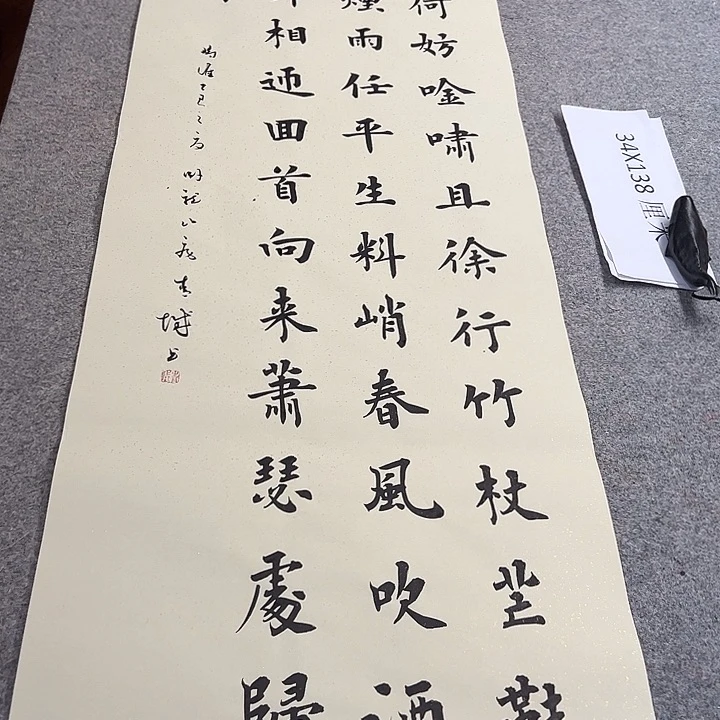 何妨唫嘯且徐行竹杖芒鞋
煙雨任平生料峭春風吹酒
相迎囬首向来蕭瑟處歸
乙巳之
34X138 厘米